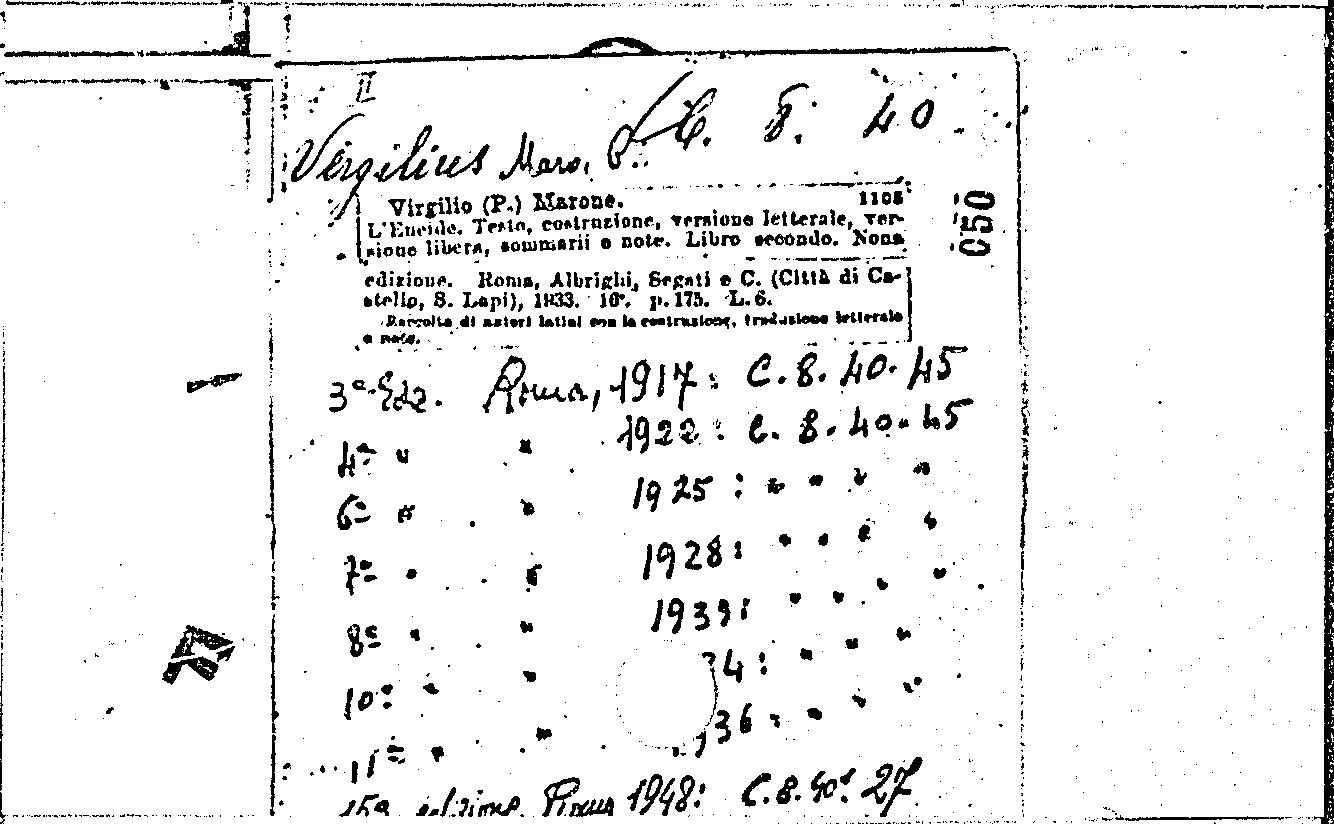 II
C. 8. 40
Virgilius Maro, P.
Virgilio (P.) Marone. 1108
L'Eneide. Testo, costruzione, versione letterale, ver-
sione libera, sommarii e note. Libro secondo. Nona
edizione. Roma, Albrighi, Segati e C. (Città di Ca-
stello, S. Lapi), 1933. 16°. p. 175. L. 6.
Raccolta di autori latini con la costruzione, traduzione letterale
e note.
050
3ª Ediz. Roma, 1917: C. 8. 40. 45
4ª " " 1922: C. 8. 40. 45
6ª " " 1925: " " " "
7ª " " 1928: " " " "
8ª " " 1939: " " " "
10ª " " 34: " " "
11ª " " 36: " " "
15ª edizione Roma 1948: C. 8. 40. 27